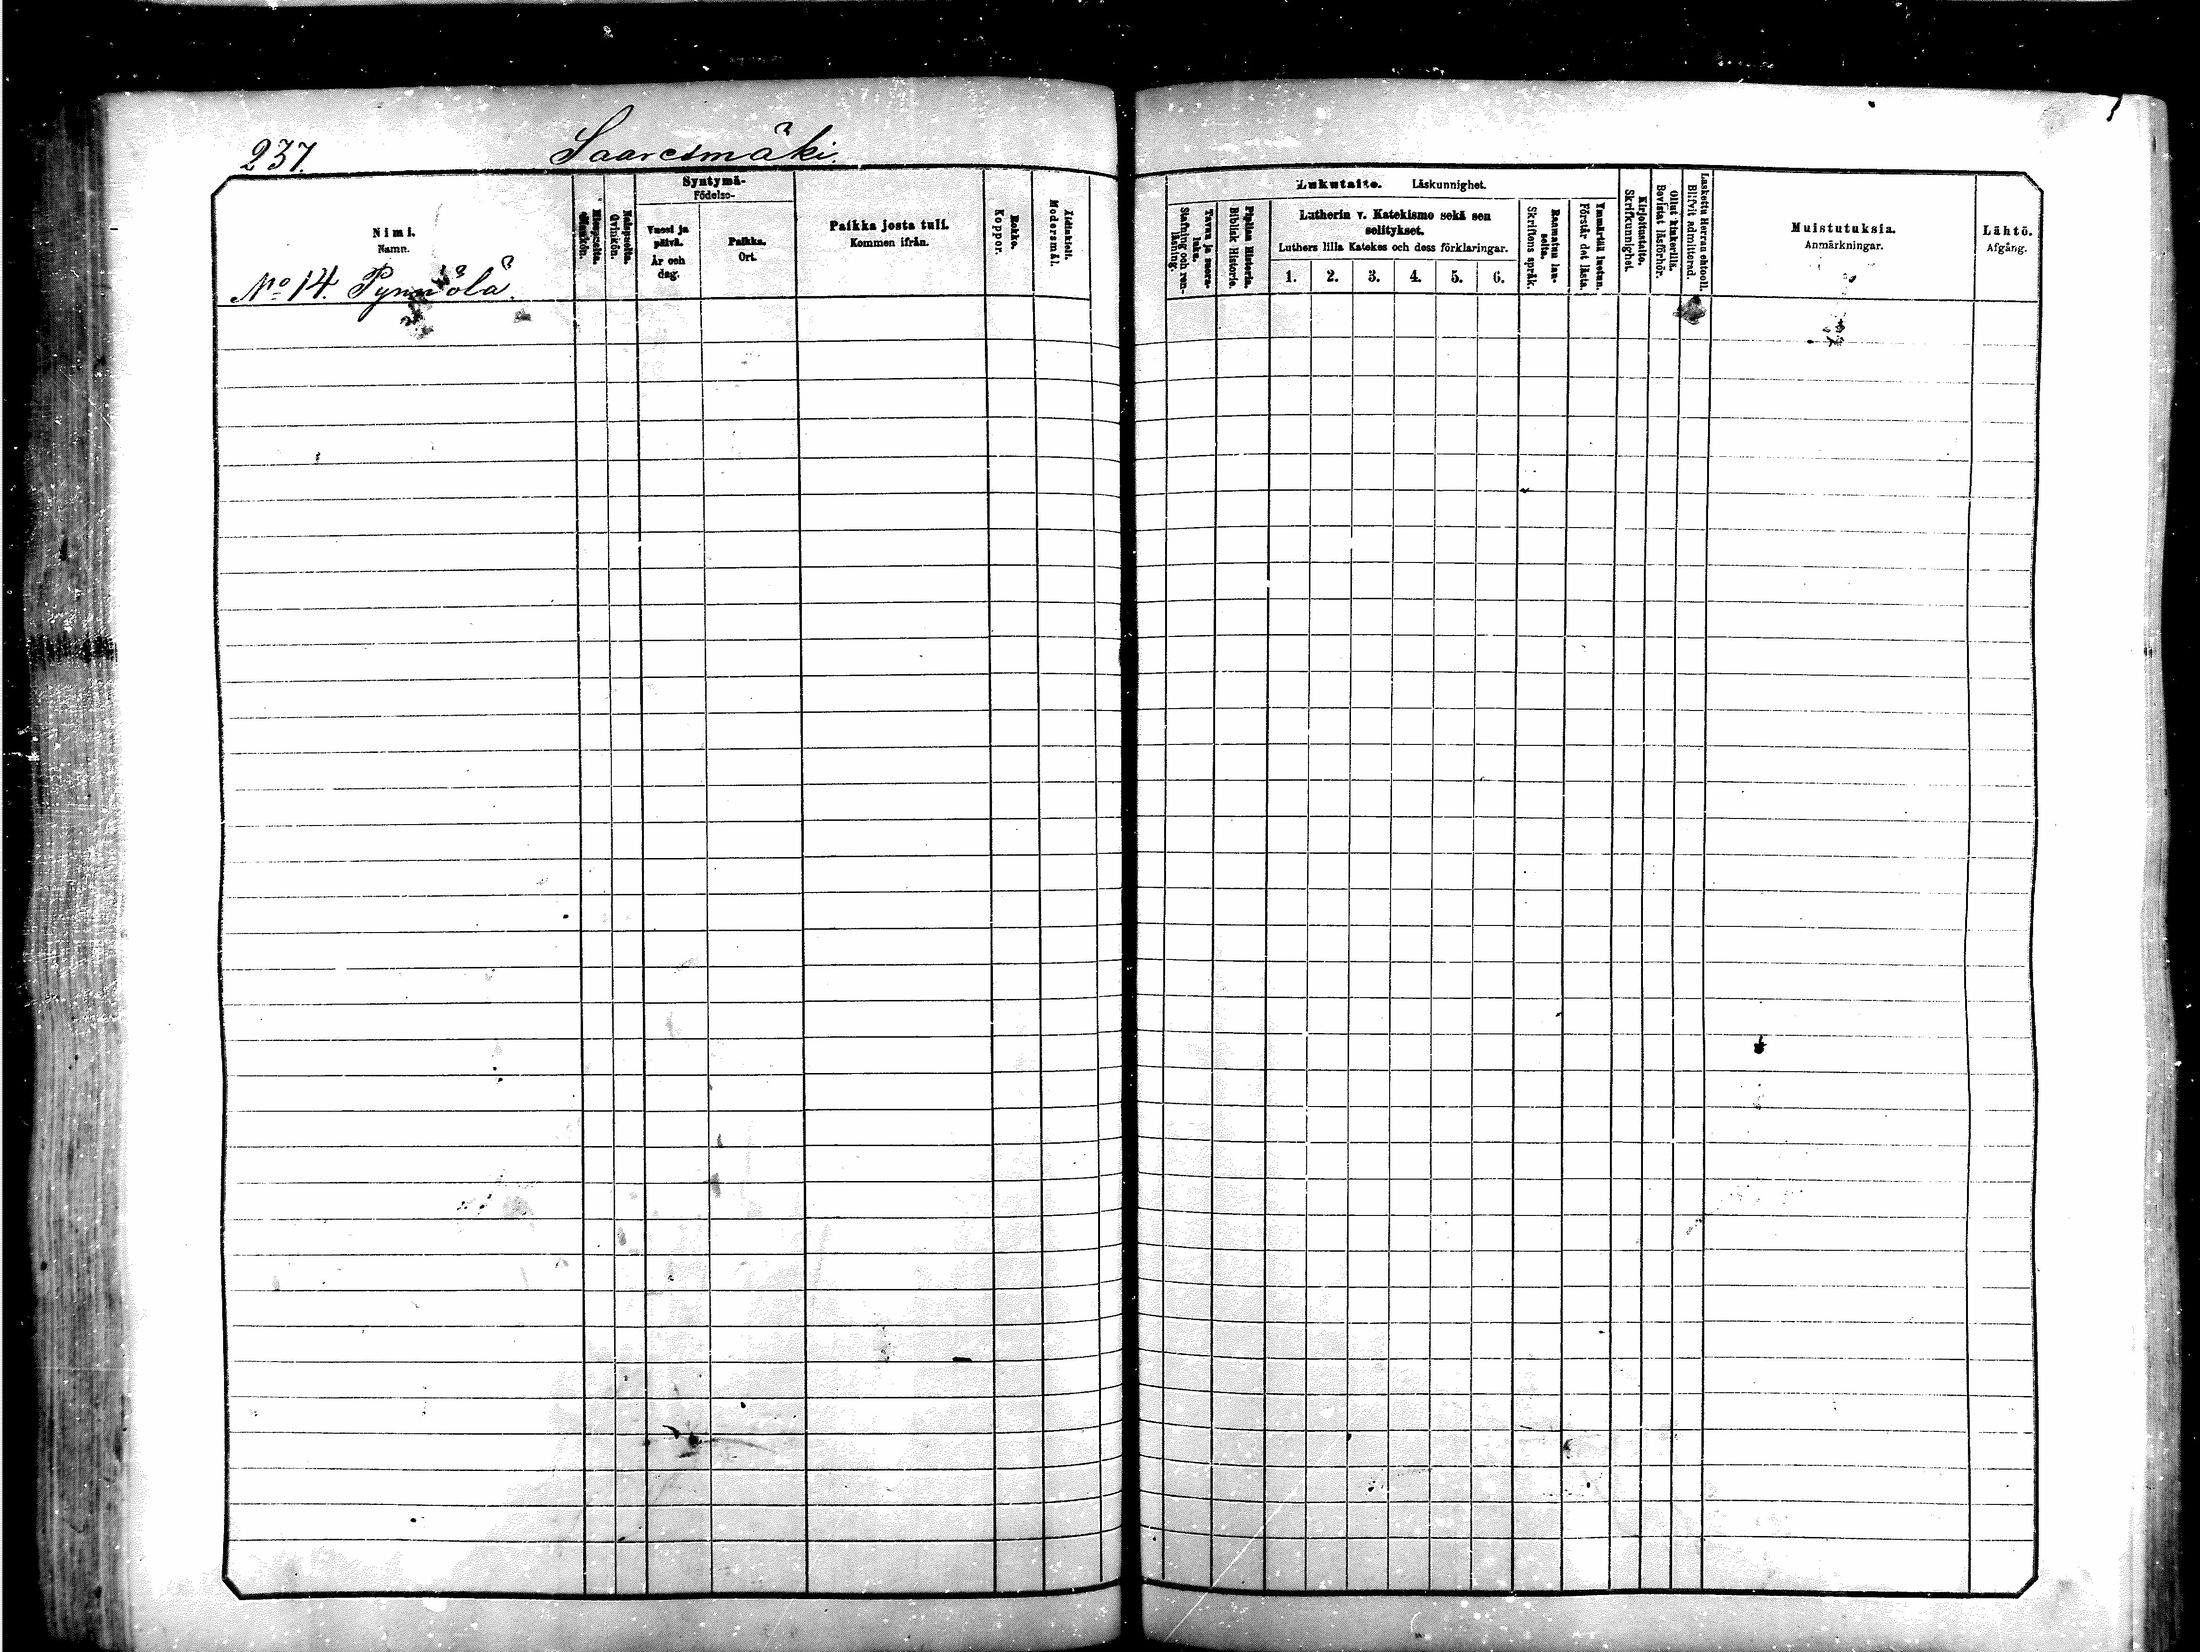 237.
Saaresmäki.
Nimi.
Namn.
No 14. Pynnölä.
Miespuolia.
Mankön.
Naispuolia.
Qvinkön.
Syntymä-
Födelse-
Vuosi ja
päivä.
År och
dag.
Paikka.
Ort.
Paikka josta tuli.
Kommen ifrån.
Rokko.
Koppor.
Äidinkieli.
Modersmål.
Lukutaito. Läskunnighet.
Tavaa ja suora-
luku.
Stafning och ren-
läsning.
Piplian Historia.
Biblisk Historie.
Lutherin v. Katekismo sekä sen
selitykset.
Luthers lilla Katekes och dess förklaringar.
1. 2. 3. 4. 5. 6.
Raamatun lau-
seita.
Skriftens språk.
Ymmärtää luetun.
Förstår det lästa.
Kirjoitustaito.
Skrifkunnighet.
Ollut kinkerillä.
Bevistat läsförhör.
Laskettu Herran ehtooll.
Blifvit admitterad.
Muistutuksia.
Anmärkningar.
Lähtö.
Afgång.